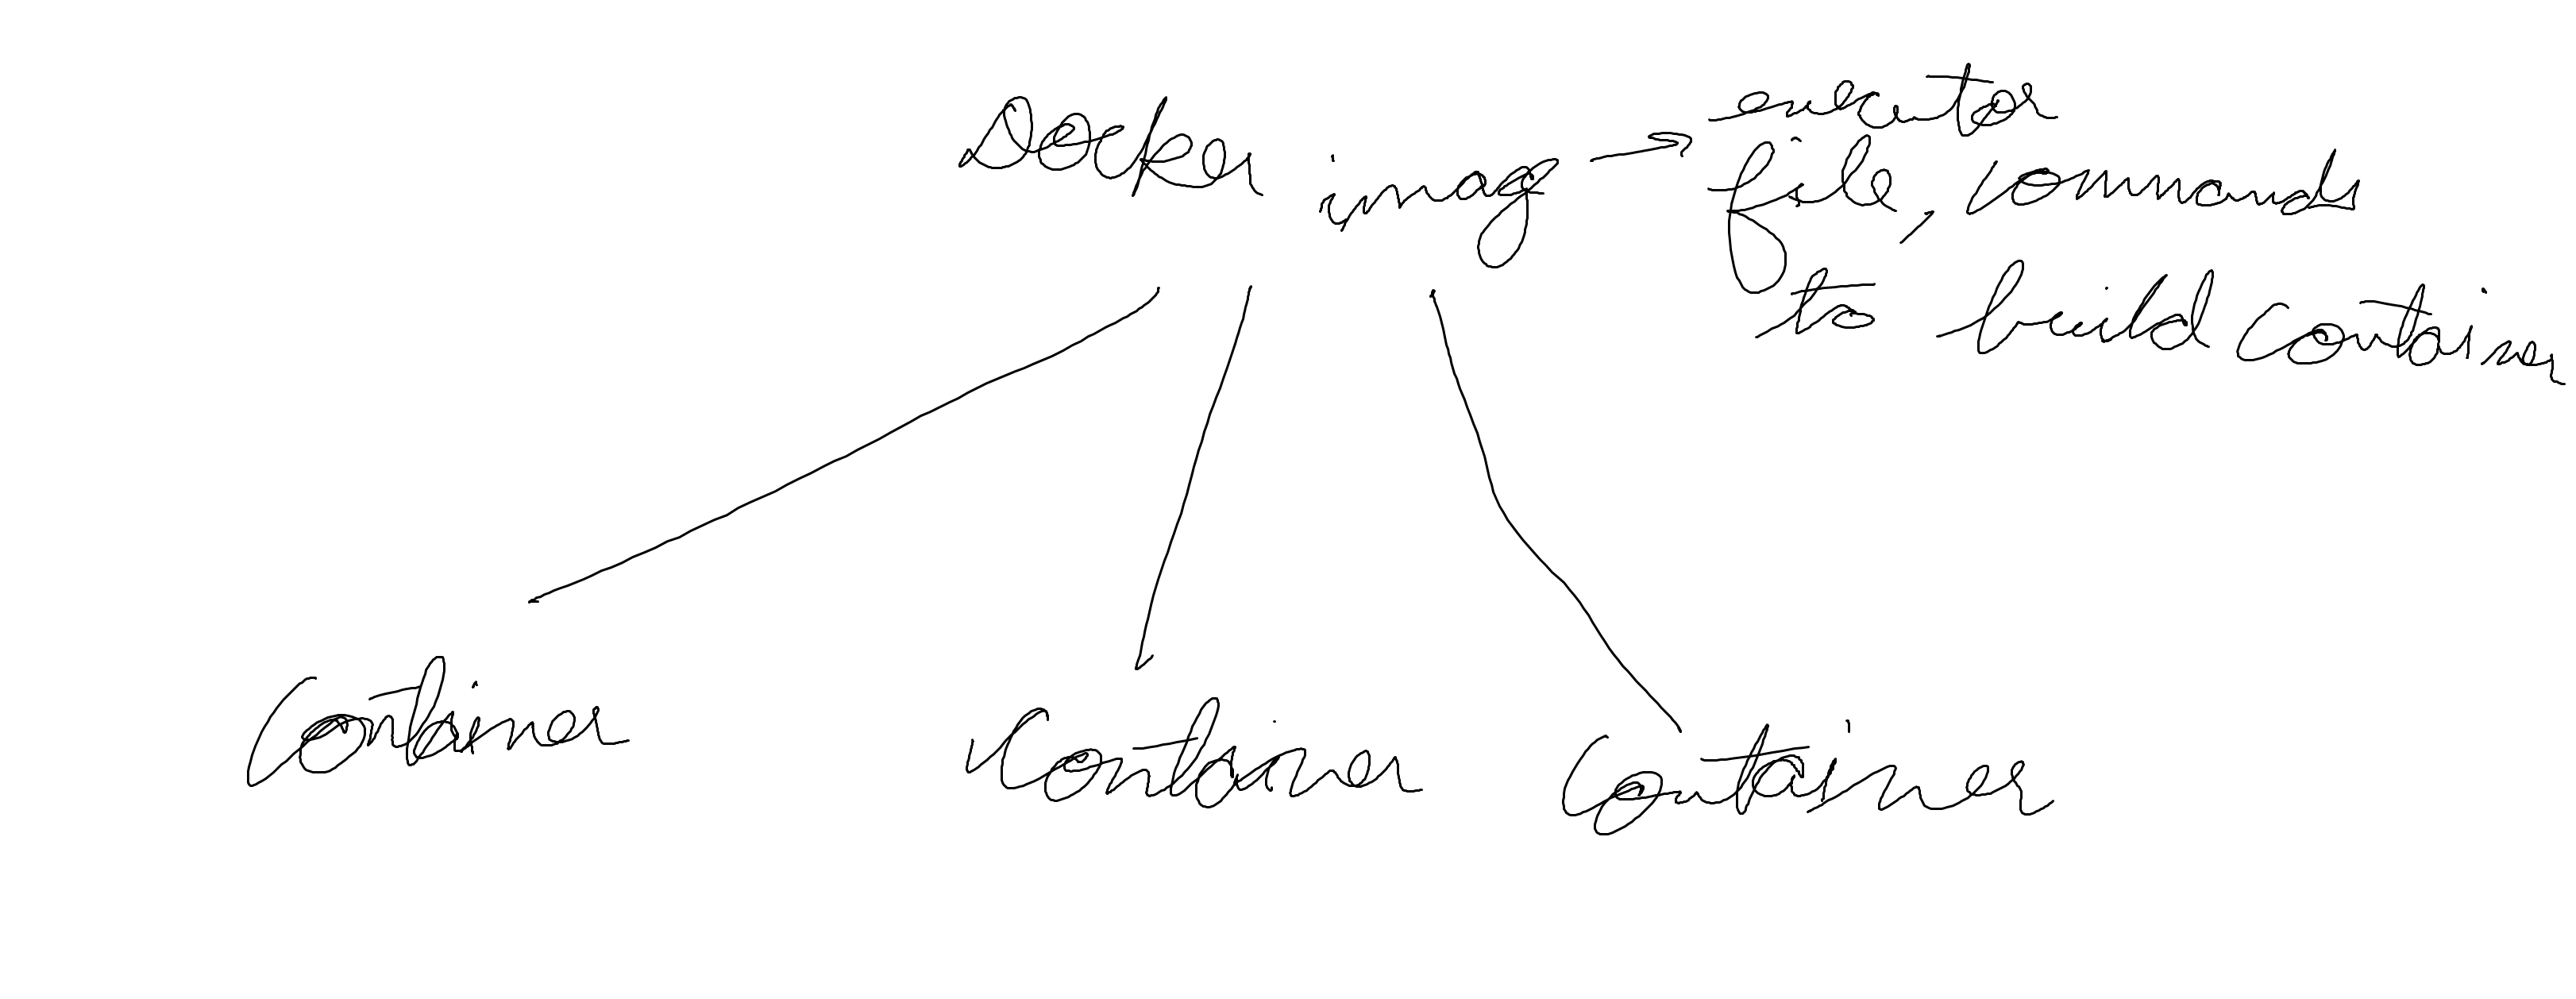 Docker imag → executor
file, commands
to build container
Container Container Container